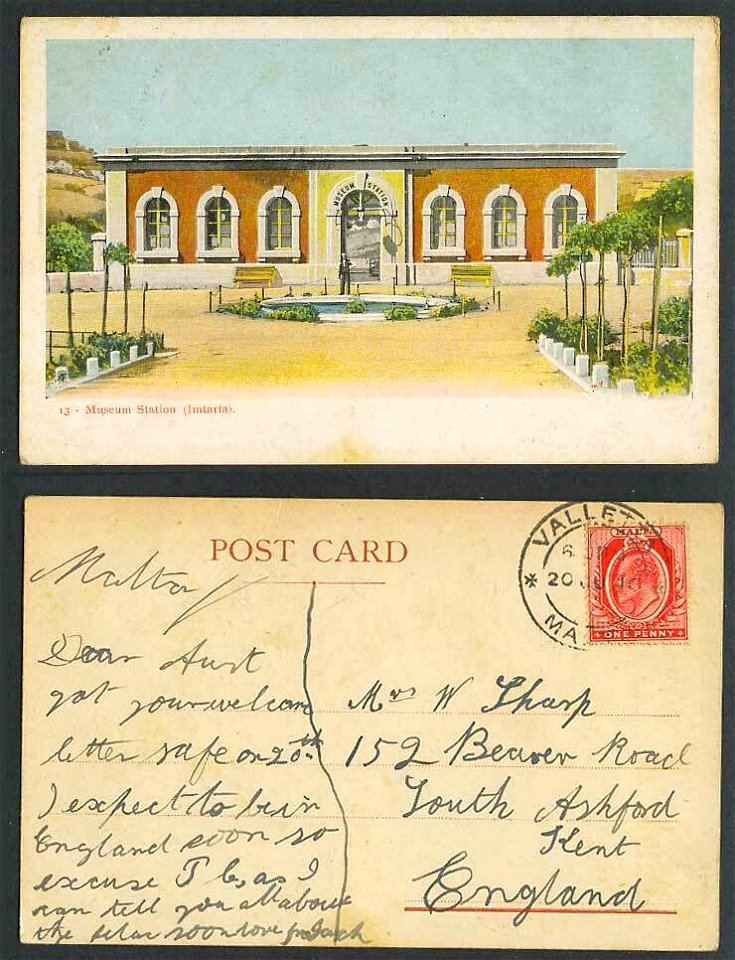 MUSEUM STATION
13 - Museum Station (Imtaria).
POST CARD
VALLETTA
20 JU
MA
MALTA
ONE PENNY
Malta
Dear Aunt
got your welcome
letter safe on 20th
I expect to be in
England soon so
excuse as I
can tell you all about
the soon love from Jack
Mrs W Sharp
152 Beaver Road
South Ashford
Kent
England